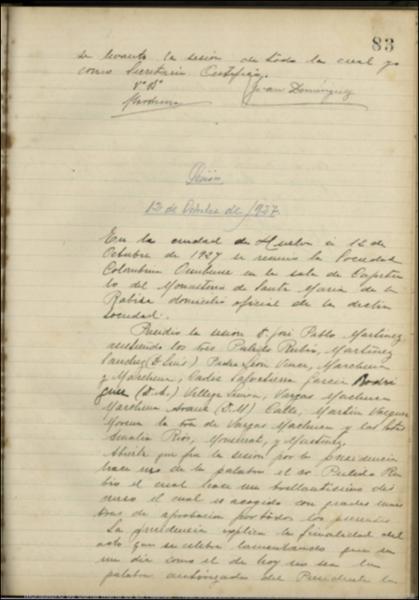 83
se levanta la sesión de todo la cual yo
como Secretario Certifico.
Vº Bº
Marchena
Juan Domínguez
Sesión
12 de Octubre de 1927
En la ciudad de Huelva a 12 de
Octubre de 1927 se reunió la Sociedad
Colombina Onubense en la sala de Capítu
lo del Monasterio de Santa María de la
Rábida domicilio oficial de la
sociedad.
Presidió la sesión D. José Pablo Martínez
asistiendo los Sres Pulido Rubio, Martínez
Sánchez (D. Luis) Pedro León, Marchena
y Marchena, Cádiz García Rodrí
guez (D. A.) Villega Simón, Vargas Machuca
Marchena (D. M) Calle, Martín Vázquez
Moreno la Sra de Vargas Machuca y las Srtas
Amalia Ríos, Monserrat, y Martínez.
Abierta que fue la sesión por la presidencia
hace uso de la palabra el Sr Pulido Ru
bio el cual hace un brillantísimo dis
curso el cual es acogido con grandes mues
tras de aprobación por todos los
La presidencia explica la finalidad del
acto que se celebra lamentando que en
un día como el de hoy no sea la
palabra autorizada del Presidente la